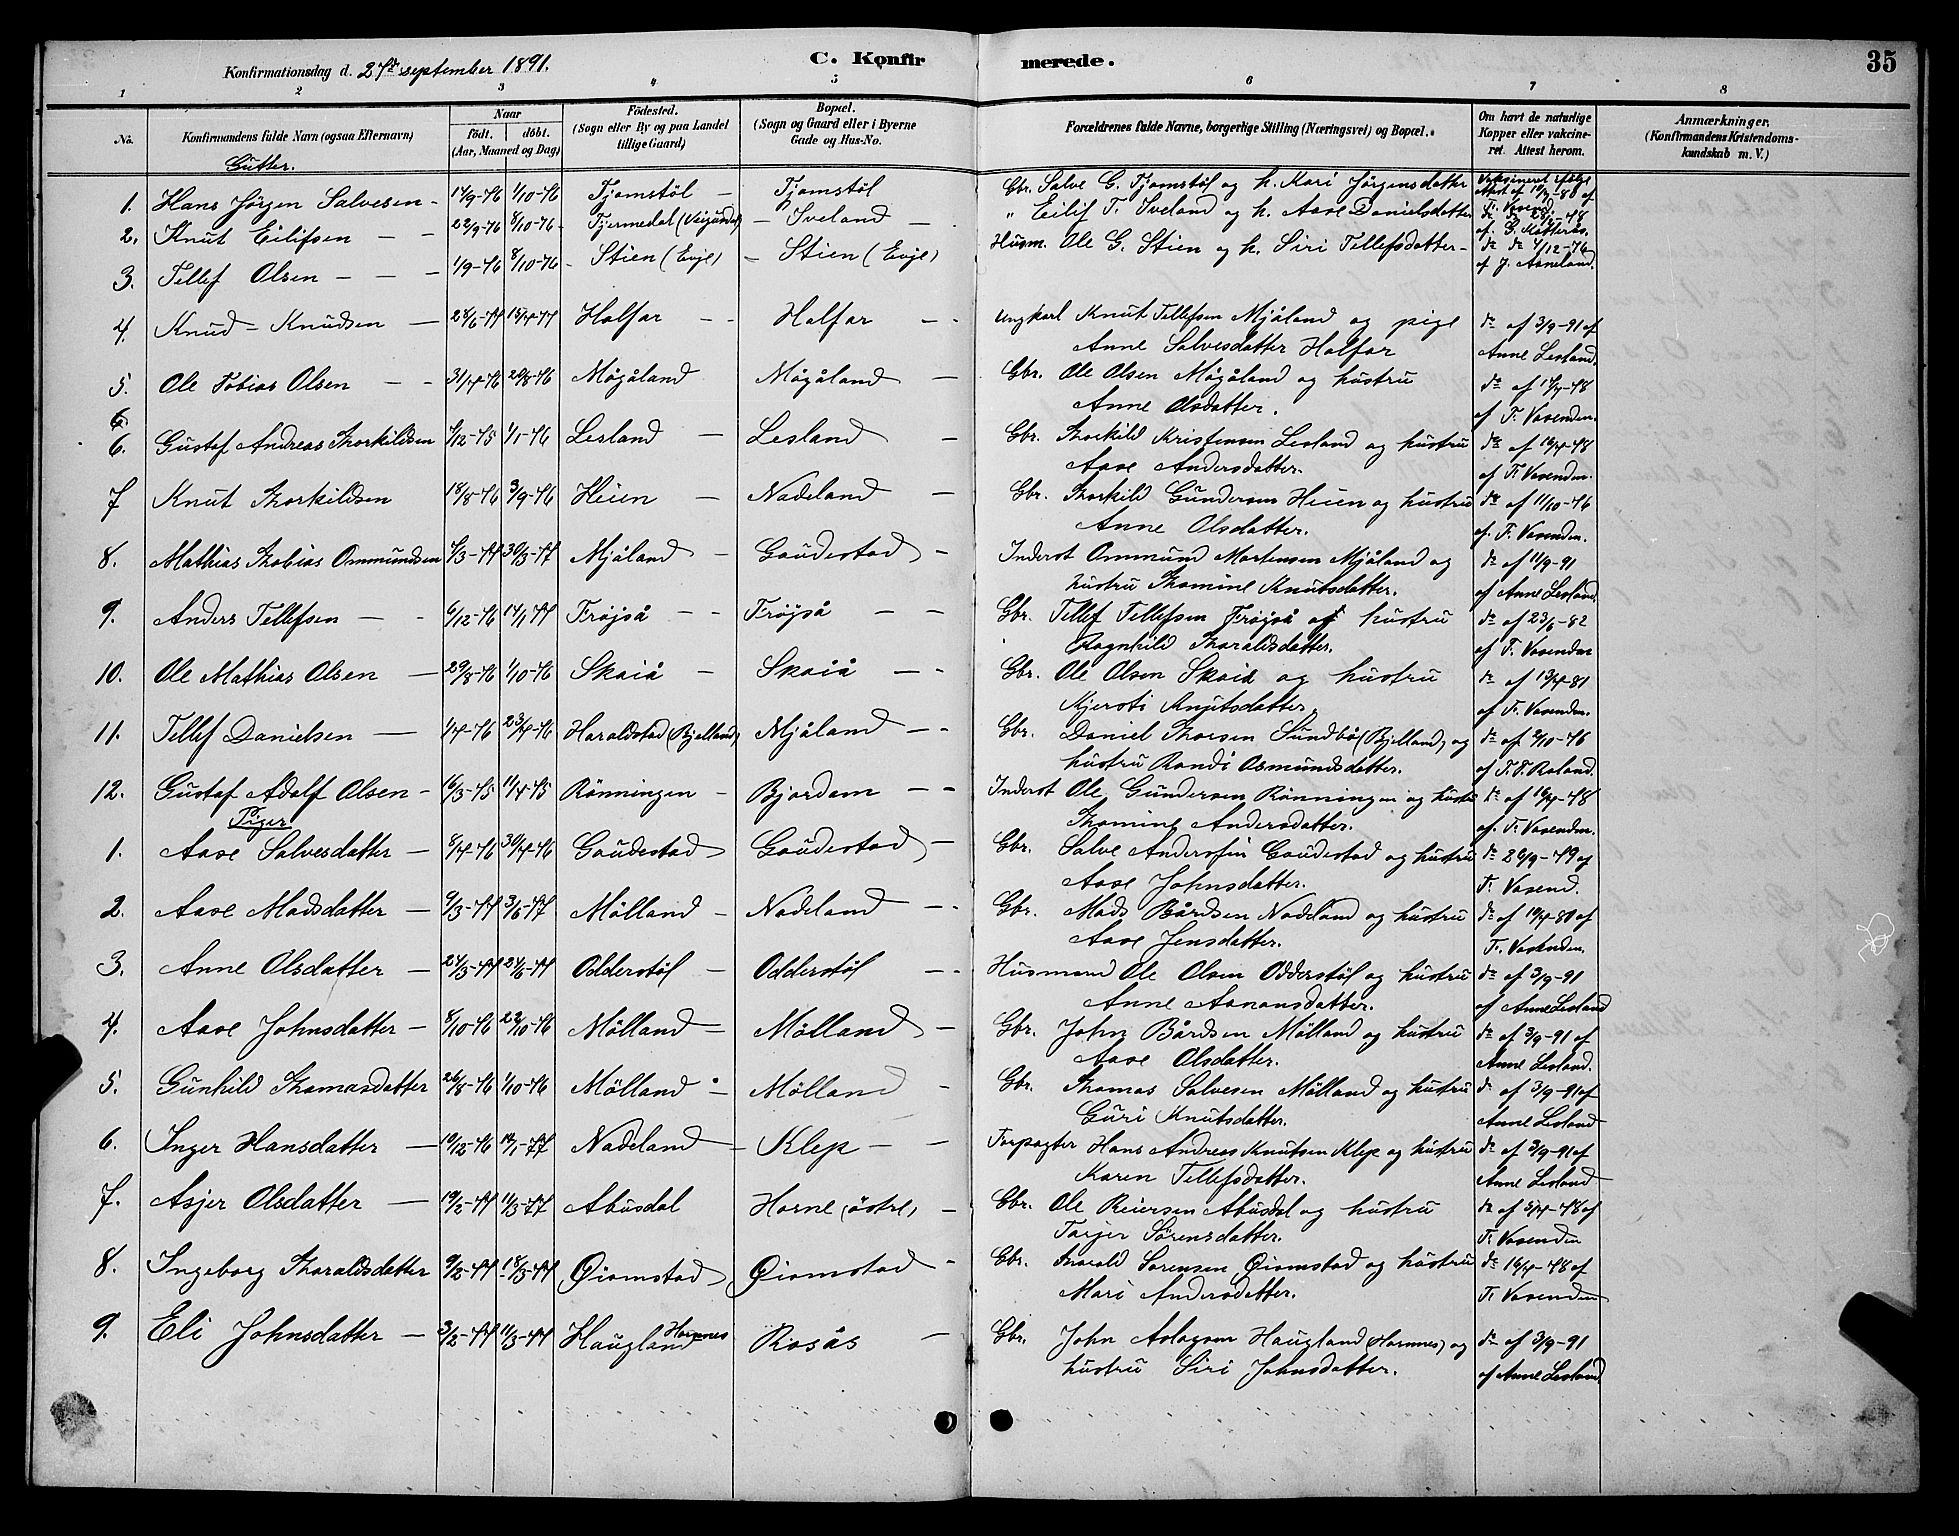 Konfirmationsdag d. 27de september 1891.
C. Konfirmerede.
35
1 2 3 4 5 6 7 8
No.
Konfirmandens fulde Navn (ogsaa Efternavn)
Naar
født. døbt.
(Aar, Maaned og Dag)
Fødested.
(Sogn eller By og paa Landet
tillige Gaard)
Bopæl.
(Sogn og Gaard eller i Byerne
Gade og Hus-No.
Forældrenes fulde Navne, borgerlige Stilling (Næringsvei) og Bopæl.
Om havt de naturlige
Kopper eller vakcine-
ret. Attest herom.
Anmærkninger,
(Konfirmandens Kristendoms-
kundskab m. V.)
Gutter.
1. Hans Jörgen Salvesen – 17/9-76 1/10-76 Tjomstöl – Tjomstöl Gbr. Salve G. Tjomstöl og h. Kari Jörgensdatter
2. Knut Eilifsen – – 22/9-76 8/10-76 – Iveland – " Eilif T. Iveland og h. Aase Danielsdatter
3. Tellef Olsen – – – 1/9-76 8/10-76 – Stien (Evje) – Stien (Evje) Husm. Ole G. Stien og h. Siri Tellefsdatter – do do 4/12-76
af J. Aaneland.
4. Knud Knudsen – 28/6-77 Halfar – – Halfar – – ungkarl Knut Tellefsen Mjåland og pige do af 3/9-91 af
Anne Salvesdatter Halfar Anne Lesland.
5. Ole Tobias Olsen – – 31/7-76 20/8-76 Mögåland Mögåland – Gbr. Ole Olsen Mögåland og hustru
Anne Olsdatter. af T. Vasenden.
6.
6. Gustaf Andreas Thorkildsen /12-75 1/1-76 Lesland – Lesland – Gbr. Thorkild Kristensen Lesland og hustru do af 16/4-78
Aase Andersdatter. af T. Vasenden.
7 Knut Thorkildsen 18/8-76 3/9-76 Heien – Nadeland – Gbr. Thorkild Gundersen Heien og hustru do af 11/10-76
Anne Olsdatter. af. T. Vasenden.
8. Mathias Thobias Ommundsen 7/3-77 30/3-77 Mjåland – Gaudestad – Inderst Ommund Mortensen Mjåland og do af 11/9-91
hustru Thomine Knutsdatter. af Anne Lesland.
9. Anders Tellefsen – – 6/12-76 17/1 77 Fröjså – – Fröjså – – Gbr. Tellef Tellefsen Fröjså og hustru do af 23/6-82
Ragnhild Tharaldsdatter. af T. Vasenden
10. Ole Mathias Olsen – 29/8-76 1/10-76 Skaiå – Skaiå – – Gbr. Ole Olsen Skaiå og hustru do af 13/4-81
Kjersti Knutsdatter. af T. Vasenden.
11. Tellef Danielsen – 1/4-76 23/4-76 Haraldstad (Bjelland) Mjåland – – Gbr. Daniel Thorsen Sundbö (Bjelland) og
hustru Randi Osmundsdatter. af T. T. Røland.
12. Gustaf Adolf Olsen – 16/3-75 11/4-75 Rönningen – Bjordam – – Inderst Ole Gundersen Rönningen og hustru do af 16/4-78
Thomine Andersdatter. af. T. Vasenden.
Piger
1. Aase Salvesdatter – 8/4-76 30/4-76 Gaudestad Gaudestad – Gbr. Salve Andersen Gaudestad og hustru do 26/9-79 af
Aase Johnsdatter. T. Vasend.
2. Aase Madsdatter – 9/3-77 3/6-77 Mölland – Nadeland – – Gbr. Mads Bårdsen Nadeland og hustru
Aase Jensdatter. T. Vasenden.
3. Anne Olsdatter – 24/3-77 Odderstöl – Odderstöl – – Husmand Ole Olsen Odderstöl og hustru do af 3/9-91
Anne Aanonsdatter. af Anne Lesland
4. Aase Johnsdatter – 8/10-76 22/10-76 Mölland – Mölland – Gbr. John Bårdsen Mölland og hustru do af 3/9-91 af
Aase Olsdatter. Anne Lesland.
5. Gunhild Thomasdatter 26/8-76 1/10-76 Mölland – Mölland – Gbr. Thomas Salvesen Mölland og hustru do af 3/9-91 af
Guri Knutsdatter. Anne Lesland
6. Inger Hansdatter – 19/12-76 14/1-77 Nadeland – Klep – – Forpagter Hans Andreas Knutsen Klep og hustru do af 3/9-91 af
Karen Tellefsdatter. Anne Lesland
7. Asjer Olsdatter – 19/2-77 11/3-77 Abusdal Horne (östre) – Gbr. Ole Reiersen Abusdal og hustru do af 5/4-78 af
Tarjer Sörensdatter. T. Vasenden
8. Ingeborg Tharaldsdatter 9/2-77 18/3-77 Øiomstad Øiomstad – Gbr. Tharald Sörensen Øiomstad og hustru do 16/4-78 af
Mari Andersdatter. T. Vasenden
9. Eli Johnsdatter – 3/2-77 11/3-77 Haugland Hornnes Rosås – Gbr. John Aslagsen Haugland (Hornnes) og do af 3/9-91
hustru Siri Johnsdatter. af Anne Lesland.